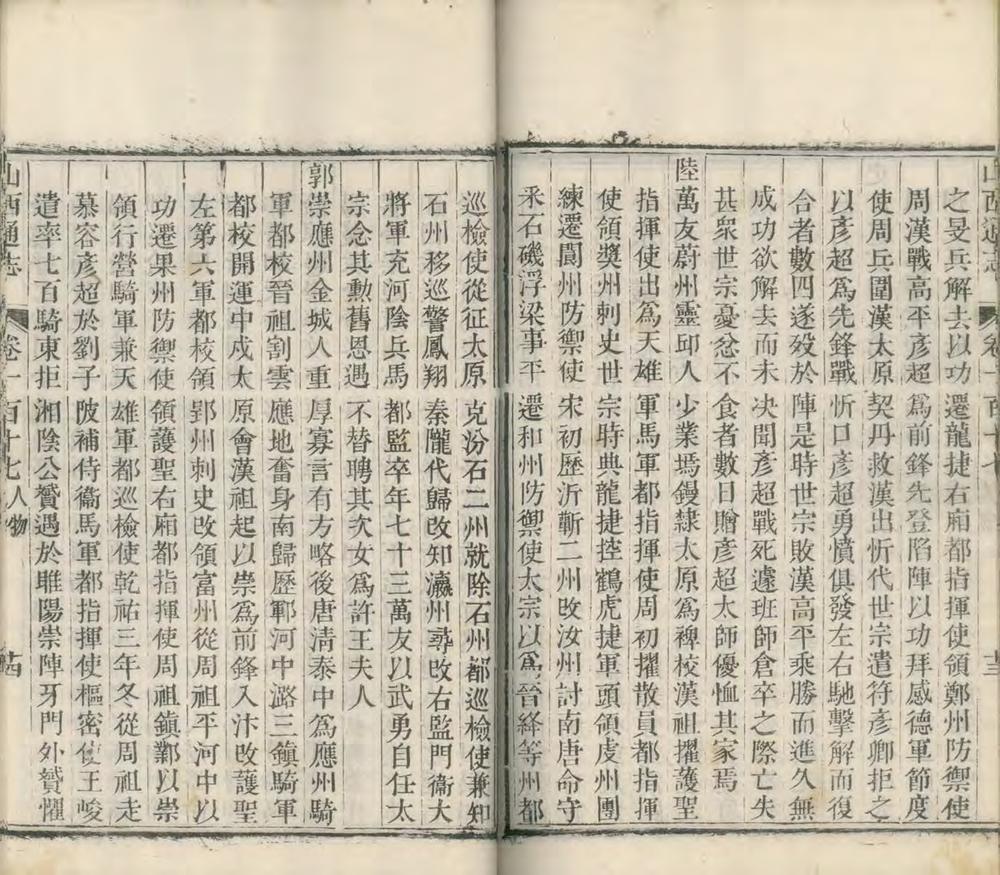 之旻兵解去以功遷龍捷右廂都指揮使領鄭州防禦使
周漢戰高平彥超爲前鋒先登陷陣以功拜感德軍節度
使周兵圍漢太原契丹救漢出忻代世宗遣符彥卿拒之
以彥超爲先鋒戰忻口彥超勇憤俱發左右馳擊解而復
合者數四遂歿於陣是時世宗敗漢高平乘勝而進久無
成功欲解去而未决聞彥超戰死遽班師倉卒之際亡失
甚衆世宗憂忿不食者數日贈彥超太師優恤其家焉
陸萬友蔚州靈邱人少業焉鏝隸太原爲裨校漢祖擢護聖
指揮使出爲天雄軍馬軍都指揮使周初擢散員都指揮
使領奬州刺史世宗時典龍捷控鶴虎捷軍頭領虔州團
練遷閬州防禦使宋初歷沂蘄二州改汝州討南唐命守
釆石磯浮梁事平遷和州防禦使太宗以爲晉絳等州都
巡檢使從征太原克汾石二州就除石州都巡檢使兼知
石州移巡警鳳翔秦隴代歸改知瀛州尋改右監門衞大
將軍充河陰兵馬都監卒年七十三萬友以武勇自任太
宗念其勲舊恩遇不替聘其次女爲許王夫人
郭崇應州金城人重厚寡言有方略後唐清泰中爲應州騎
軍都校晉祖割雲應地奮身南歸歷鄆河中潞三鎮騎軍
都校開運中戍太原會漢祖起以崇爲前鋒入汴改護聖
左第六軍都校領郢州刺史改領富州從周祖平河中以
功遷果州防禦使領護聖右廂都指揮使周祖鎮鄴以崇
領行營騎軍兼天雄軍都巡檢使乾祐三年冬從周祖走
慕容彥超於劉子陂補侍衞馬軍都指揮使樞密使王峻
遣率七百騎東拒湘陰公贇遇於睢陽崇陣牙門外贇懼
山西通志
卷一百十七人物